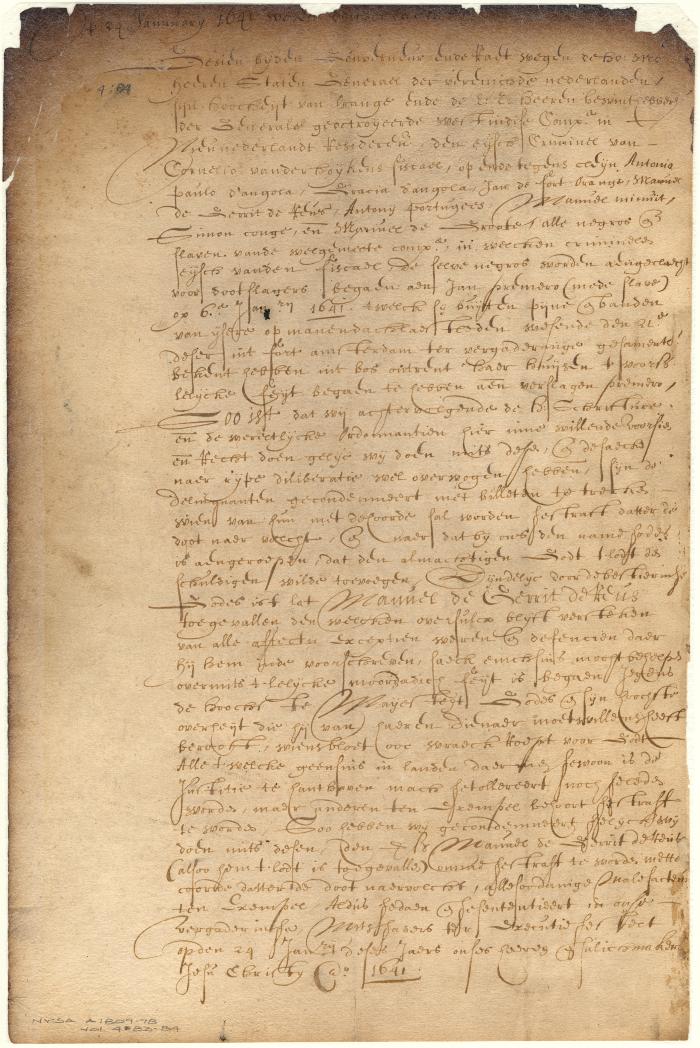 24 January 1641
4:84
Gesien byden Gouverneur ende Raet wegen de Ho: Mo:
heeren Staten Generael der vereenichde nederlanden,
sijn hoocheyt van Orange ende de E: E: heeren bewinthebbers
der Generale geoctroyeerde west Indise Compe. in
Nieu nederlandt Residerende, den eysch Criminel van
Cornelio vander hoykens fiscael, op ende tegens cleyn Antonio
Paulo d'angola, Gracia d'angola, Jan de fort orange, Manuel
de Gerrit de Reus, Antony Portugees, Manuel minuit,
Simon conge, en Manuel de Groote, alle negros &
slaven vande welgemeete compe. in welcken criminele
eysch vanden fiscael, de selve negros worden aengeclaecht
voor dootslagers begaen aen Jan premero (mede slave)
op 6e. Jan. 1641. twelck sy buyten pijne & banden
van ysere op maenendach laestleden wesende den 21e.
deser int fort amsterdam ter vergaderinge gesamentl.
bekent hebben int bos ontrent haer huysen t voors.
lelycke feyt begaen te hebben aen verslagen premero,
Soo ist dat wij achtervolgende de H. Schrifture
en de wereltlycke Ordonnantien hier inne willende voorsien
en Recht doen gelyc wy doen mits dese, & de saecke
naer rype diliberatie wel overwogen hebben, syn de
delinquanten gecondemneert met billeten te trecken
wien van hun met de koorde sal worden gestraft datter de
doot naer volcht, & naer dat by ons den name Godes
is aengeroepen, dat den almachtigen Godt t lodt des
schuldigen wilde toevoegen, Eyndelyc door de bestieringe
Godes ist lot Manuel de Gerrit de Reus
toegevallen den welcken oversulcx blyft versteken
van alle exceptien weren & defencien daer
hij hem inde voorschreven saeck eenichsins mocht behelpen
overmits t lelycke moordadich feyt is begaen Jegens
de hoochste Mayesteyt Godes & syn hoochste
overheyt die hij van haeren dienaer moetwillens heeft
berooft, wiens bloet ooc wraeck roept voor Godt
Alle t welcke geensins in landen daer men gewoon is de
Justitie te hanthaven mach getollereert noch geleden
worden, maer anderen ten Exempel behoort gestraft
te worden. Soo hebben wy gecondemneert gelyc wy
doen mits desen, den Manuel de Gerrit de Reus
(alsoo hem t lodt is toegevallen) omme gestraft te worden mette
coorde datter de doot naervolcht, alle sodanige Malefacteurs
ten Exempel, Aldus gedaen & gesententieert in onse
vergaderinge Mitsgaders ter Executie gestelt
opden 24 Jan. deses Jaers onses heeren & salichmakers
Jesu Christy Ao. 1641.
NYSA A1809-78
VOL 4:83-84